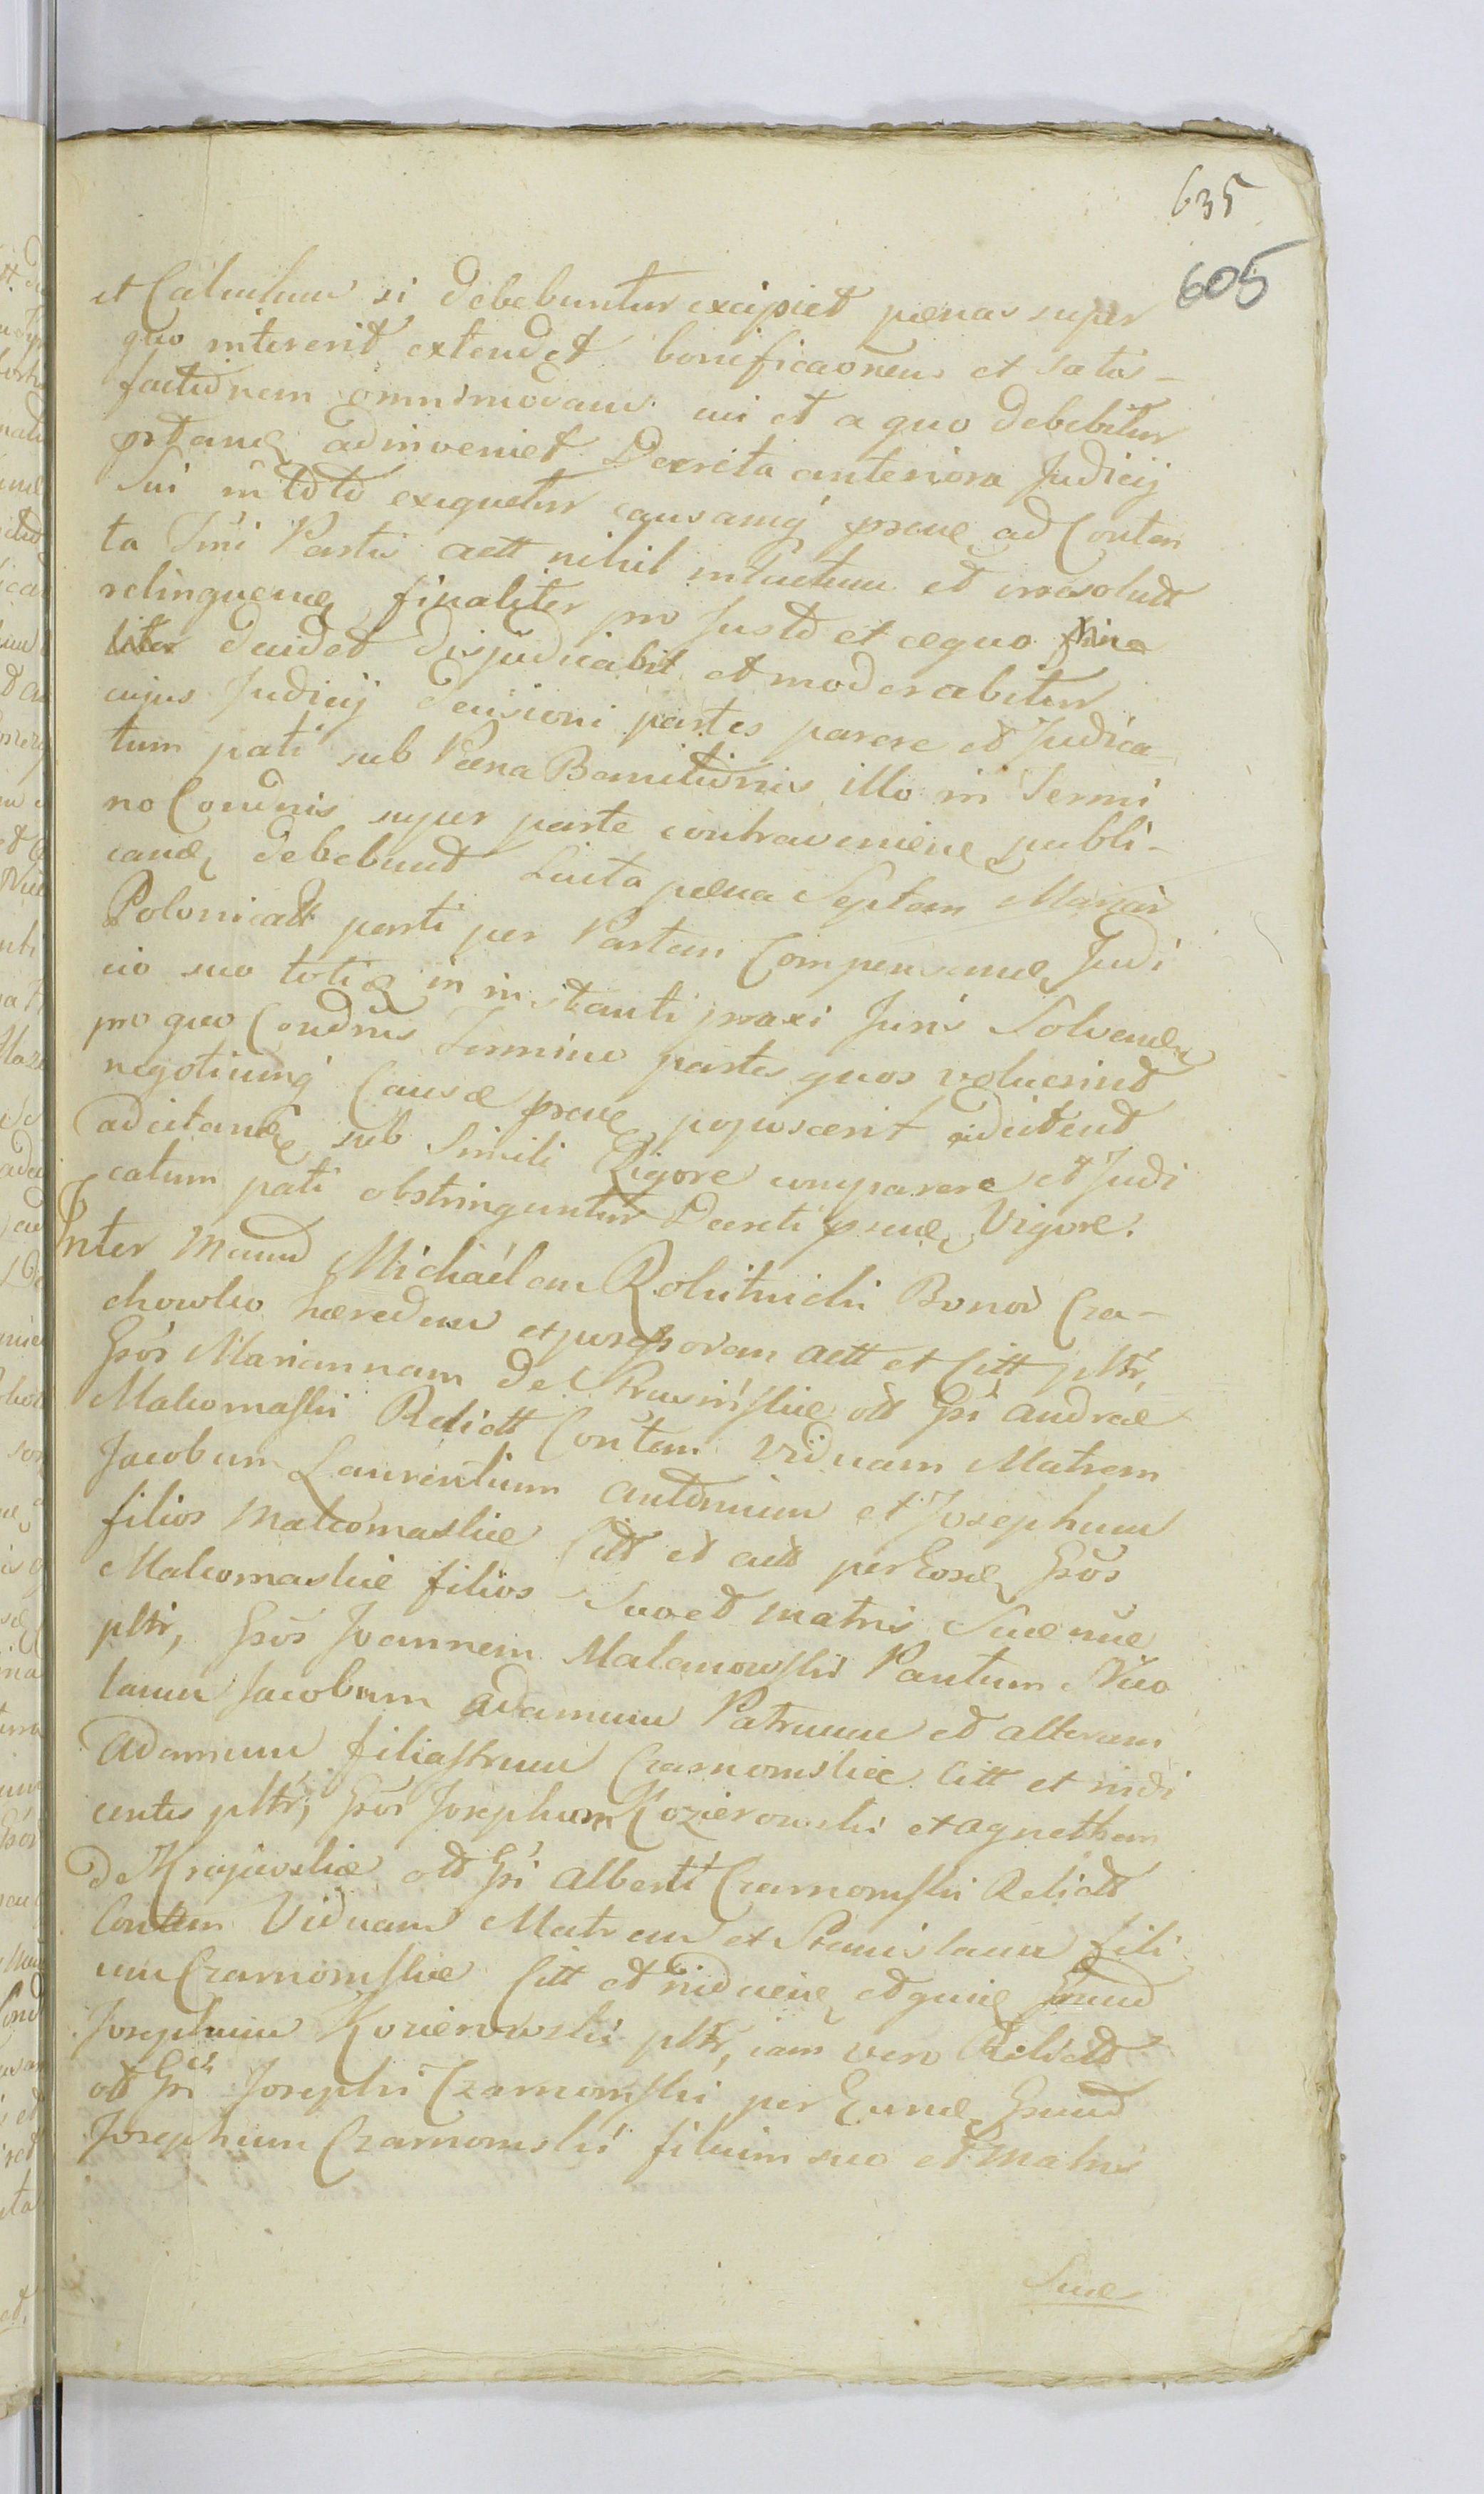 635
605
et Calculum si debebuntur excipiet pœnas super
quo intererit extendet bonificaõnem et satis-
factionem omnimodam cui et a quo debebitur
pstanđ adinveniet Decreta anteriora Judicij
Sui in toto exequetur causamq prnẽ ad Conten
ta Tmi Partis actt nihil intactum et irresolutt
relinquenđ finaliter pro Justo et æquo
liter decidet disjudicabit et moderabitur
cujus Judicij decisioni partes parere et Judica-
tum pati sub Pœna Bannitionis illo in Termi
no Condnis super parte contravenienẽ publi-
canđ debebunt Luita pœna Septem Marcar
Polonicatt parti per Partem Compensanđ Judi
cio suo toties in instanti praxi Juris Solvenđ
pro quo Condnis Termino partes quos voluerint
negotiumq Causæ prnẽ poposcerit adcitent
adcitandiq sub Simili Rigore comparere et Judi
catum pati obstringuntur Decreti prnẽ Vigore.
Inter Mcum Michaelem Rokitnicki Bonor Cza-
chowko hæredem et possessorem actt et Citt pltr,
Gsos Mariannam de Krasinskie ott Gsi Andreæ
Makomaski Relictt Contem Viduam Matrem
Jacobum Laurentium Antonium et Josephum
filios Makomaskie Citt et actt per Eosđ Gsos
Makomaskie filios Suo et matris Suæ nñe
pltr, Gsos Joannem Malanowski Pantum Nico
laum Jacobum Adamum Patruum et alterum
Adamum filiastrum Czarnomskie Citt et indi
centes pltr, Gsos Josephum Kozierowski et Agnetham
de Krajewskie ott Gsi Alberti Czarnomski Relictt
Contem Viduam Matrem et Stanislaum fili
um Czarnomskie Citt et inducenẽ Gsum
Josephum Kozierowski pltr, jam vero Relictt
ott Gsi Josephi Czarnomski per Eunđ Gsum
Josephum Czarnomski filium suo et Matris
Suæ